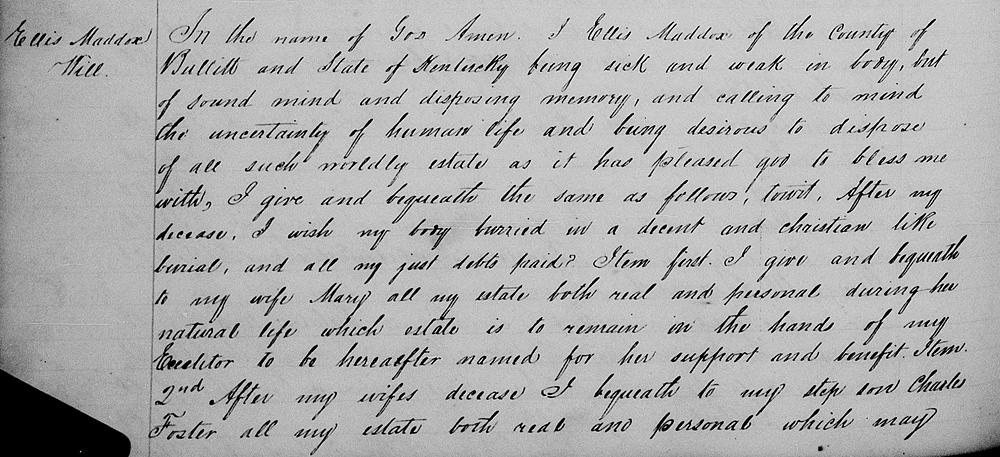 Ellis Maddox
Will.
In the name of God Amen. I Ellis Maddox of the County of
Bullitt and State of Kentucky being sick and weak in body, but
of sound mind and disposing memory, and calling to mind
the uncertainty of human life and being desirous to dispose
of all such worldly estate as it has pleased god to bless me
with, I give and bequeath the same as follows, towit, After my
decease, I wish my body burried in a decent and christian like
burial, and all my just debts paid? Item first. I give and bequeath
to my wife Mary all my estate both real and personal during her
natural life which estate is to remain in the hands of my
Exeditor to be hereafter named for her support and benefit. Item.
2nd After my wifes decease I bequeath to my step son Charles
Foster all my estate both real and personal which may